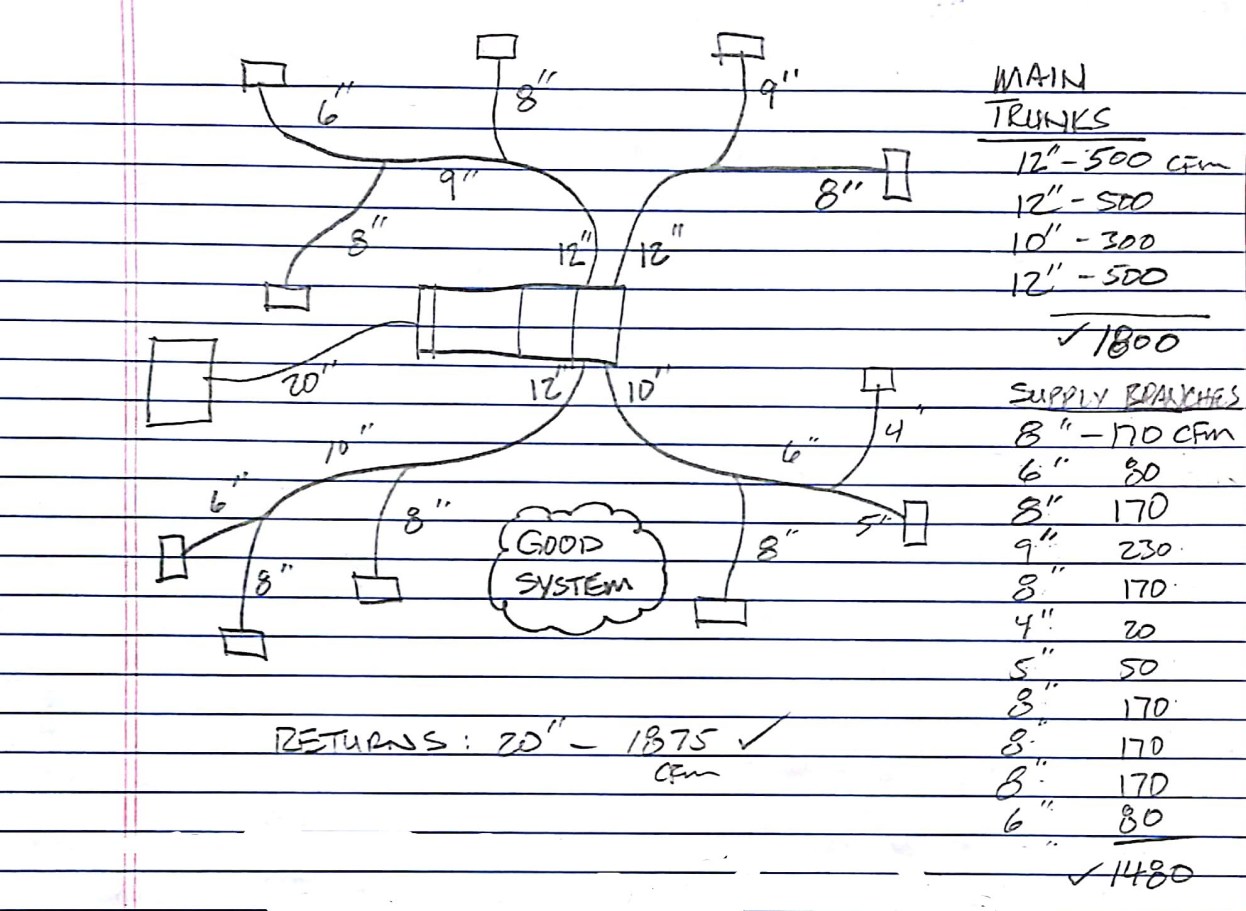 6"
8"
9"
9"
8"
8"
12"
12"
20"
12"
10"
10"
6"
8"
8"
6"
4"
5"
8"
GOOD
SYSTEM
RETURNS: 20" - 1875 ✓
CFM
MAIN
TRUNKS
12" - 500 CFM
12" - 500
10" - 300
12" - 500
✓ 1800
SUPPLY BRANCHES
8" - 170 CFM
6" 80
8" 170
9" 230
8" 170
4" 20
5" 50
8" 170
8" 170
8" 170
6" 80
✓ 1480